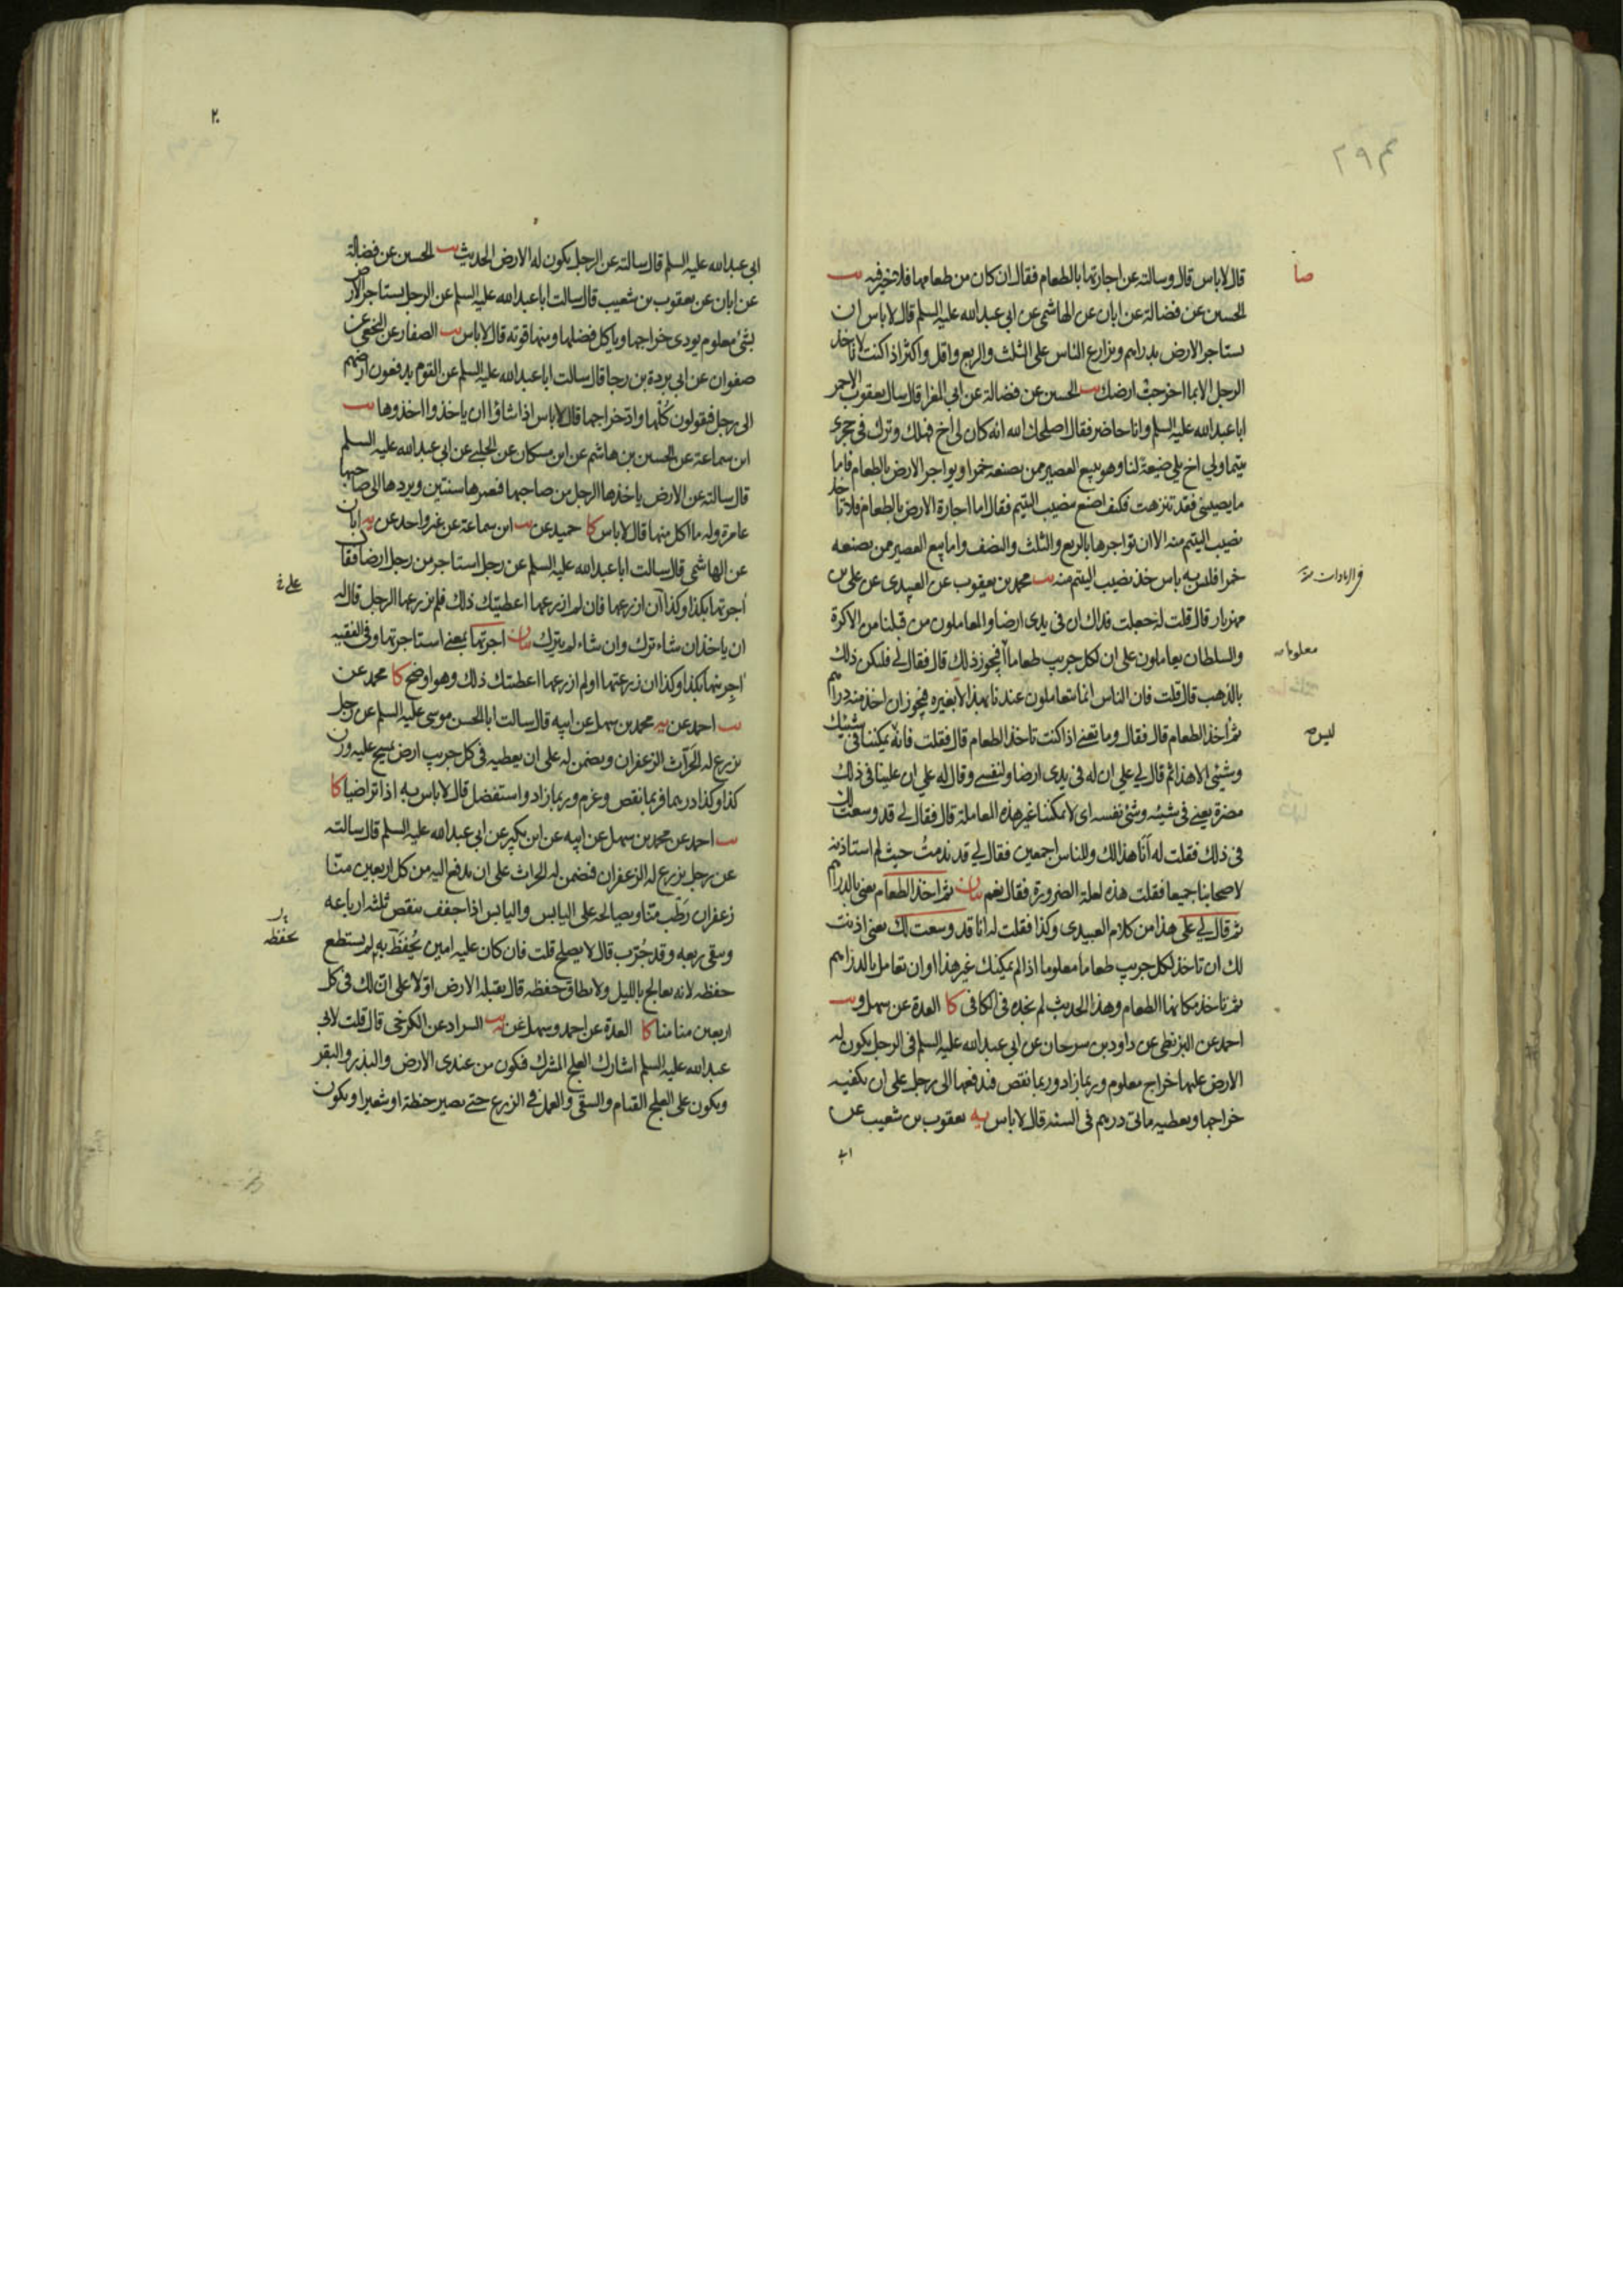 قال لا باس قال وسالته عن اجارتها بالطعام فقال ان كان من طعامها فلا خير فيه يب
الحسين عن فضالة عن ابان عن الهاشمي عن ابي عبدالله عليه السلم قال لا باس ان
يستاجر الارض بدراهم ويزارع الناس على الثلث والربع واقل واكثر اذا كنت لا تاخذ
الرجل الا بما اخرجت ارضك يب الحسين عن فضالة عن ابي المغرا قال سال يعقوب الاحمر
ابا عبدالله عليه السلم وانا حاضر فقال اصلحك الله انه كان لي اخ فهلك وترك في حجري
يتيما ولي اخ يلي ضيعة لنا وهو يبيع العصير ممن يصنعه خمرا ويواجر الارض بالطعام فاما
ما يصيبني فقد تنزهت فكيف اصنع بنصيب اليتيم فقال اما اجارة الارض بالطعام فلا تاخذ
نصيب اليتيم منه الا ان تواجرها بالربع والثلث والنصف واما بيع العصير ممن يصنعه
خمرا فليس به باس خذ نصيب اليتيم منه يب محمد بن يعقوب عن العبيدي عن علي بن
مهزيار قال قلت له جعلت فداك ان في يدي ارضا والمعاملون من قبلنا من الاكرة
والسلطان يعاملون على ان لكل جريب طعاما أفيجوز ذلك قال فقال لي فليكن ذلك
بالذهب قال قلت فان الناس انما يتعاملون عندنا بهذا لا بغيره فيجوز ان اخذ منه دراهم
ثم اخذ الطعام قال فقال وما تعني اذا كنت تاخذ الطعام قال فقلت فانه يمكننا في شيئك
وشيئي الا هذا ثم قال لي علي ان له في يدي ارضا ولنفسي وقال له علي ان علينا في ذلك
مضرة يعني في شيئه وشئ نفسه اي لا يمكننا غير هذه المعاملة قال فقال لي قد وسعت لك
في ذلك فقلت له أنا هذا لك وللناس اجمعين فقال لي قد ندمت حيث لم استاذنه
لاصحابنا جميعا فقلت هذه لعلة الضرورة فقال نعم بيان ثم اخذ الطعام يعني بالدراهم
ثم قال لي على هذا من كلام العبيدي وكذا فقلت له انا قد وسعت لك يعني اذنت
لك ان تاخذ لكل جريب طعاما معلوما اذا لم يمكنك غير هذا او ان تعامل بالدراهم
ثم تاخذ مكانها الطعام وهذا الحديث لم نجده في الكافي كا العدة عن سهل و يب
احمد عن البزنطي عن داود بن سرحان عن ابي عبدالله عليه السلم في الرجل يكون له
الارض عليها خراج معلوم وربما زاد وربما نقص فيدفعها الى رجل على ان يكفيه
خراجها ويعطيه مائتي درهم في السنة قال لا باس يه يعقوب بن شعيب عن
ابي
صا
معلوما
ليس
٢٠
ابي عبدالله عليه السلم قال سالته عن الرجل يكون له الارض الحديث يب الحسين عن فضالة
عن ابان عن يعقوب بن شعيب قال سالت ابا عبدالله عليه السلم عن الرجل يستاجر الارض
بشئ معلوم يودى خراجها وياكل فضلها ومنها قوته قال لا باس يب الصفار عن النخعي عن
صفوان عن ابي بردة بن رجا قال سالت ابا عبدالله عليه السلم عن القوم يدفعون ارضهم
الى رجل فيقولون كلها واد خراجها قال لا باس اذا شاؤا ان ياخذوا اخذوها يب
ابن سماعة عن الحسين بن هاشم عن ابن مسكان عن الحلبي عن ابي عبدالله عليه السلم
قال سالته عن الارض ياخذها الرجل من صاحبها فيعمرها سنتين ويردها الى صاحبها
عامرة وله ما اكل منها قال لا باس كا حميد عن يب ابن سماعة عن غير واحد عن يه ابان
عن الهاشمي قال سالت ابا عبدالله عليه السلم عن رجل استاجر من رجل ارضا فقال
أجرتها بكذا وكذا ان ازرعها فان لم ازرعها اعطيتك ذلك فلم يزرعها الرجل قال له
ان ياخذ ان شاء ترك وان شاء لم يترك بيان اجرتها بمعنى استاجرتها وفي الفقيه
أجرنيها بكذا وكذا ان زرعتها او لم ازرعها اعطيتك ذلك وهو اوضح كا محمد عن
يب احمد عن يه محمد بن سهل عن ابيه قال سالت ابا الحسن موسى عليه السلم عن رجل
يزرع له الحراث الزعفران ويضمن له على ان يعطيه في كل جريب ارض يمسح عليه وزن
كذا وكذا درهما فربما نقص وغرم وربما زاد واستفضل قال لا باس به اذا تراضيا كا
يب احمد عن محمد بن سهل عن ابيه عن ابن بكير عن ابي عبدالله عليه السلم قال سالته
عن رجل يزرع له الزعفران فيضمن له الحراث على ان يدفع اليه من كل اربعين منا
زعفران رطب منا ويصالحه على اليابس واليابس اذا جفف ينقص ثلثه ارباعه
وبقي ربعه وقد جرب قال لا يصلح قلت فان كان عليه امين يحفظ به لم يستطع
حفظه لانه يعالج بالليل ولا يطاق حفظه قال يقبله الارض اولا على ان لك في كل
اربعين منا منا كا العدة عن احمد وسهل عن يه يب السراد عن الكرخي قال قلت لابي
عبدالله عليه السلم اشارك العلج المشرك فيكون من عندي الارض والبذر والبقر
ويكون على العلج القيام والسقي والعمل في الزرع حتى يصير حنطة او شعيرا ويكون
يحفظه